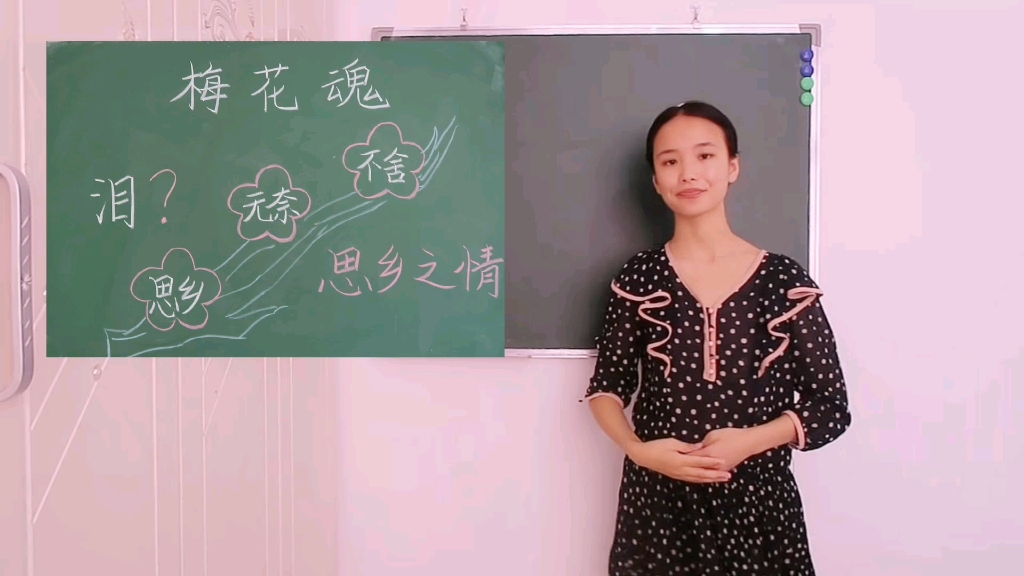 梅花魂
不舍
泪？
无奈
思乡
思乡之情